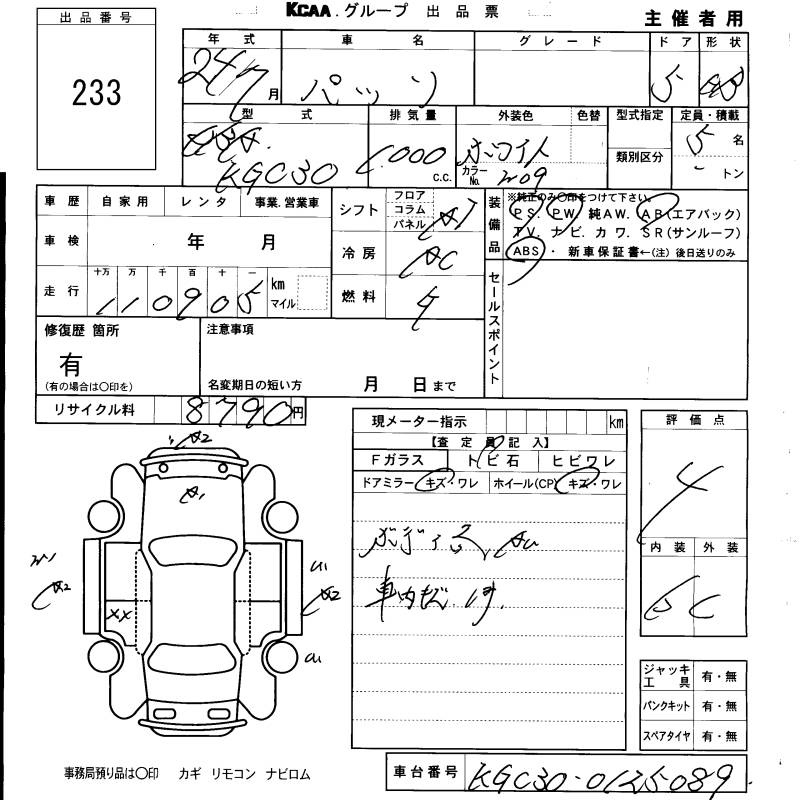 KCAA. グループ 出品票
主催者用
出品番号
233
年式 車名 グレード ドア 形状
24/7月 パッソ 5
型式 排気量 外装色 色替 型式指定 定員・積載
KGC30 1,000 c.c. ホワイト 5名
類別区分
カラーNo. W09 トン
車歴 自家用 レンタ 事業.営業車
シフト フロア コラム パネル AT
装備品 ※純正のみ〇印をつけて下さい。
PS. PW. 純AW. AB(エアバック)
TV. ナビ. カワ. SR(サンルーフ)
ABS・ 新車保証書←(注) 後日送りのみ
車検 年 月
冷房 AC
走行 十万 万 千 百 十 一
110905 km マイル
燃料 ガ
セールスポイント
修復歴 箇所 注意事項
有
(有の場合は〇印を) 名変期日の短い方 月 日まで
リサイクル料 8790円
現メーター指示 km
評価点
【査定員記入】
Fガラス トビ石 ヒビワレ
ドアミラー キズ・ワレ ホイール(CP) キズ・ワレ
4
A2
A1
ボディ
内装 外装
W1
A2
U1
A2
車内
C
XX
U1
ジャッキ工具 有・無
パンクキット 有・無
スペアタイヤ 有・無
事務局預り品は〇印 カギ リモコン ナビロム
車台番号 KGC30-0125089